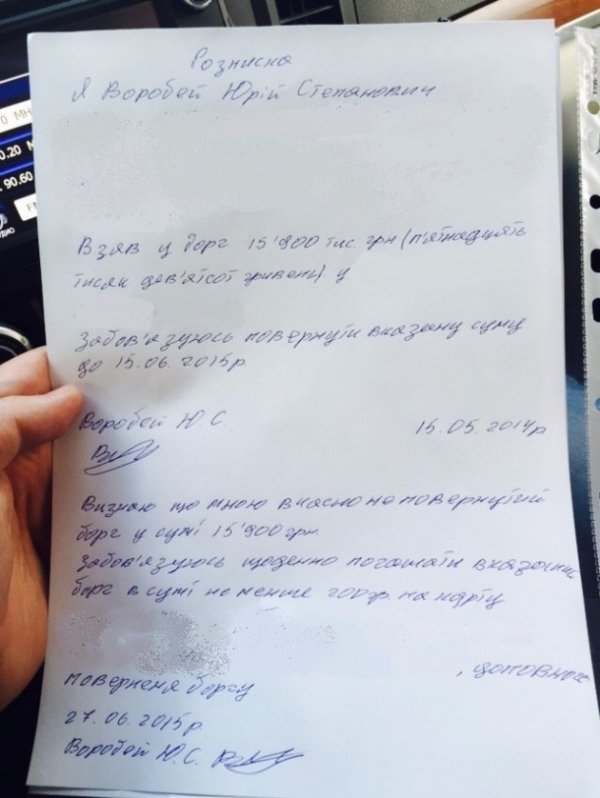 Розписка
Я Воробей Юрій Степанович
Взяв у борг 15'900 тис. грн (п'ятнадцять
тисяч дев'ятсот гривень) у
Забов'язуюсь повернути вказану суму
до 15.06.2015р.
Воробей Ю.С. 15.05.2014р
Визнаю що мною вчасно не повернутий
борг у сумі 15'900 грн.
Забов'язуюсь щоденно погашати вказаний
борг в сумі не менше 200 гр. на карту
, до повного
повернення боргу
27.06.2015р.
Воробей Ю.С.
0.20
90.60